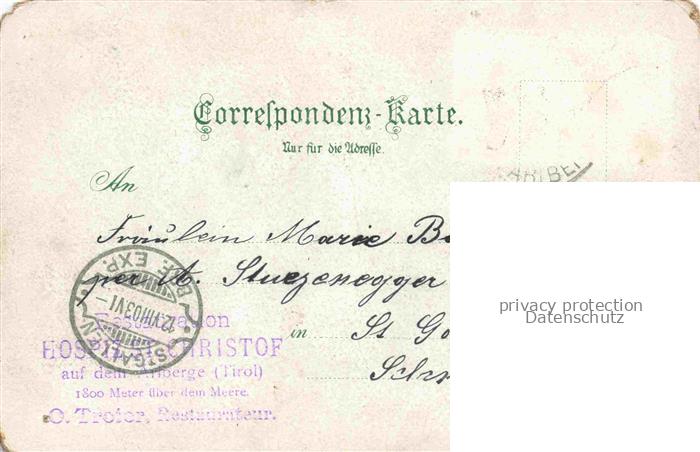 Correspondenz-Karte.
Nur für die Adresse.
An
Fräulein Marie
per A. Stuezenegger
in St
Restauration
HOSPIZ ST. CHRISTOF
auf dem Arlberge (Tirol)
1800 Meter über dem Meere.
O. Troier, Restaurateur.
ST. GALLEN
12.VIII.03.VI-
BRF. EXP.
privacy protection
Datenschutz